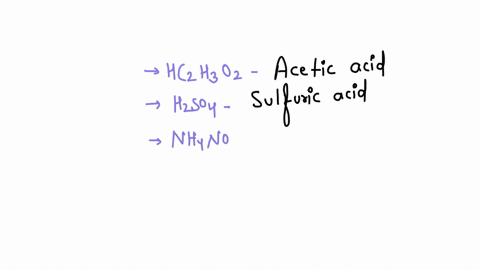 → HC2H3O2 - Acetic acid
→ H2SO4 - Sulfuric acid
→ NH4NO